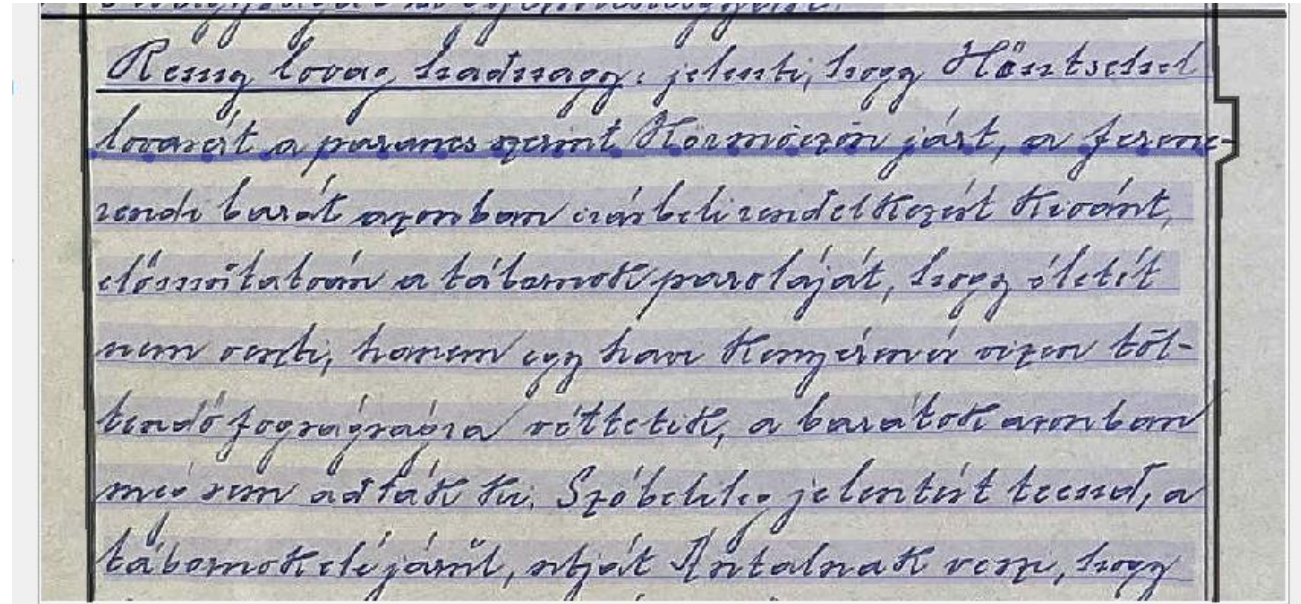 Remy lovag hadnagy: jelenti, hogy Häntschel
lovasát a parancs szerint Körmöczön járt, a ferencz-
rendi barát azonban irásbeli rendelkezést kivánt,
előmutatván a tábornok paroláját, hogy életét
nem veszti, hanem egy havi kenyéren és vizen töl-
tendő fogságra vettetik, a barátok azonban
még sem adták ki. Szóbelileg jelentést teend, a
tábornok elé járul, utját Antalnak veszi, hogy